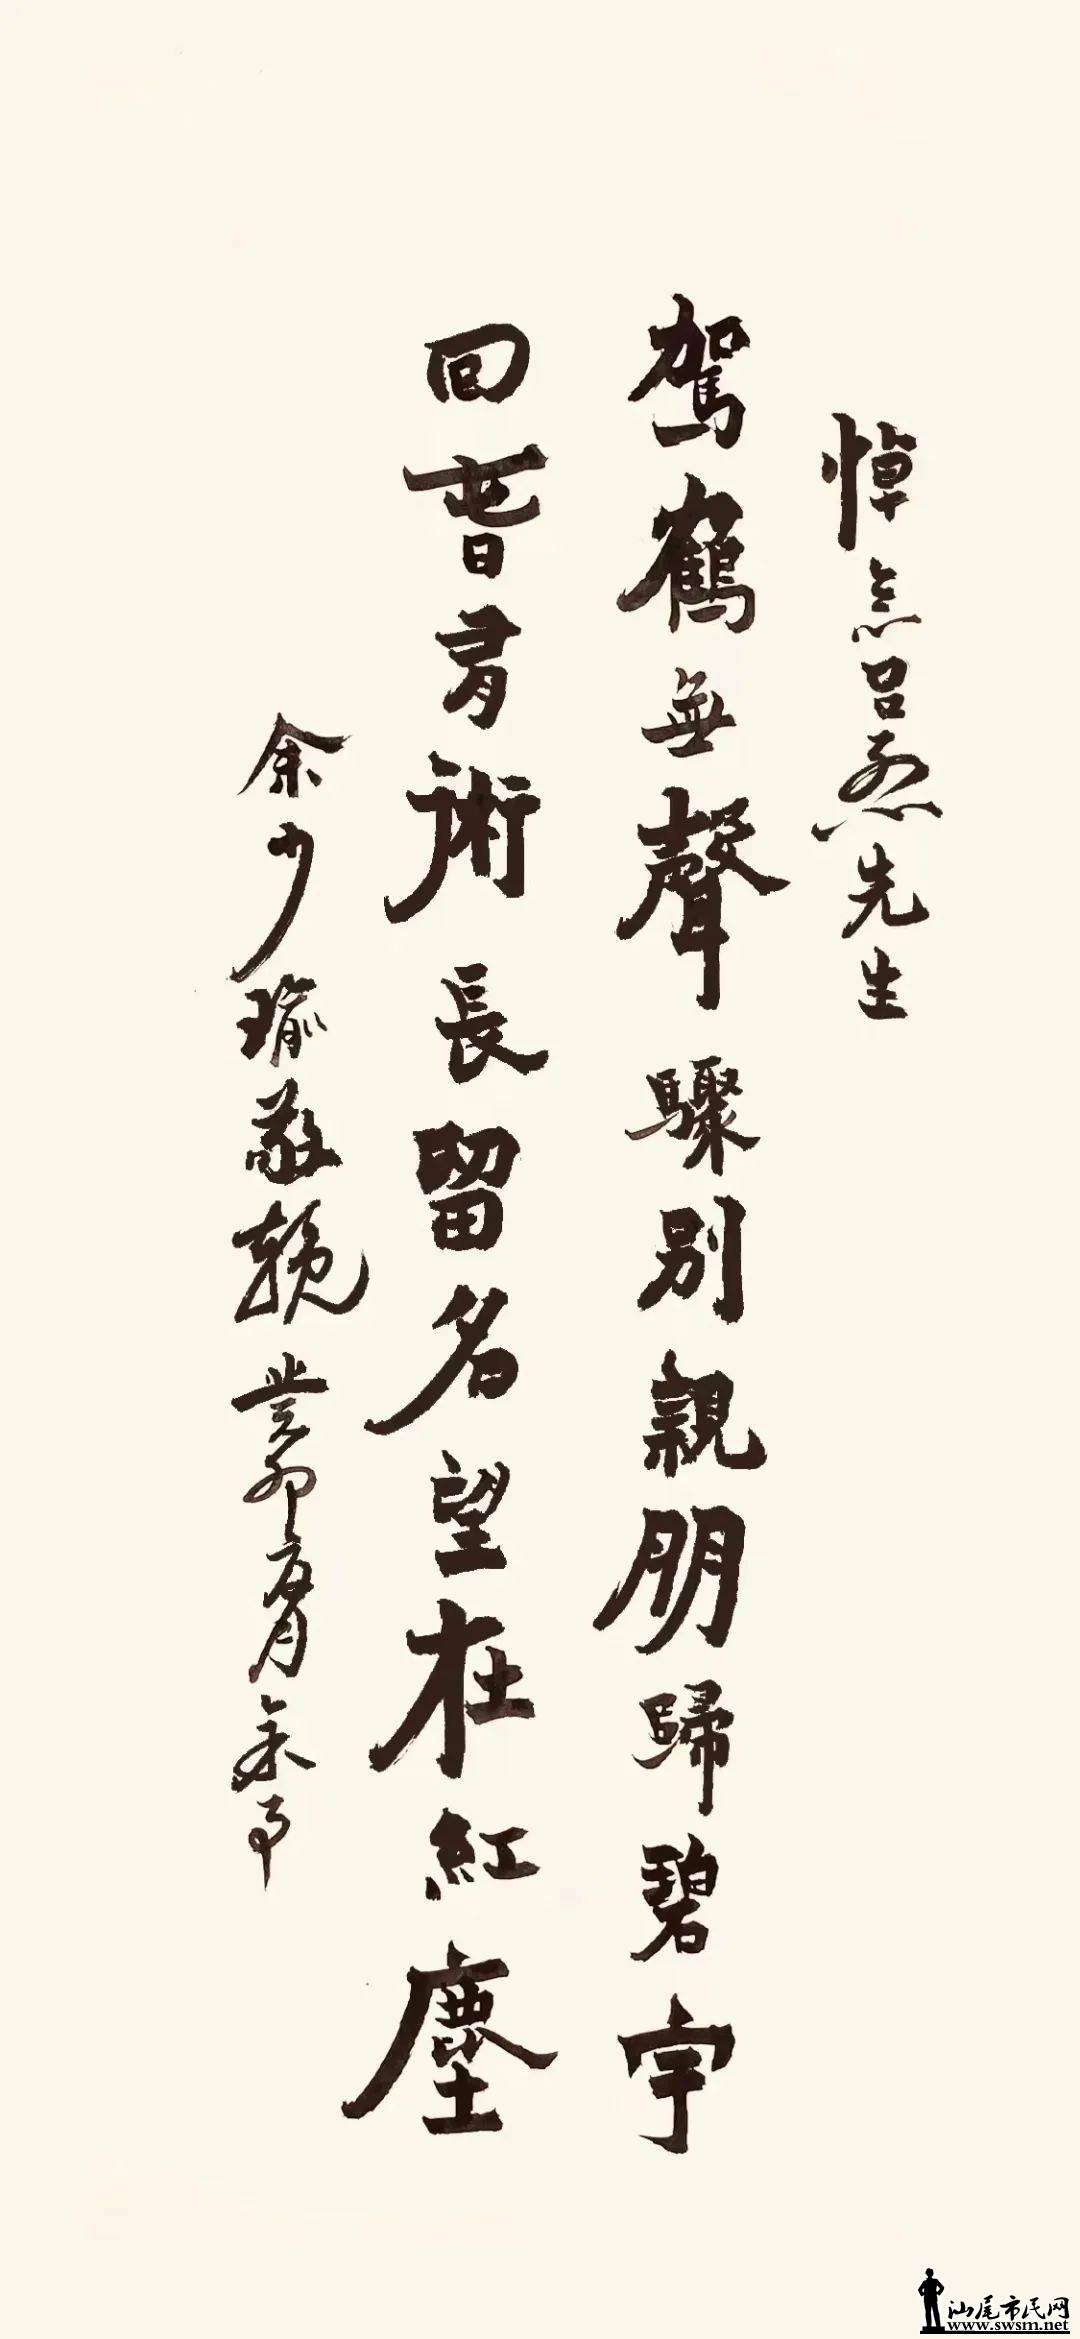 悼念吕烈先生
駕鶴無聲驟別親朋歸碧宇
回旾有術長留名望在紅塵
余少瑜敬輓癸卯
汕尾市民网
www.swsm.net